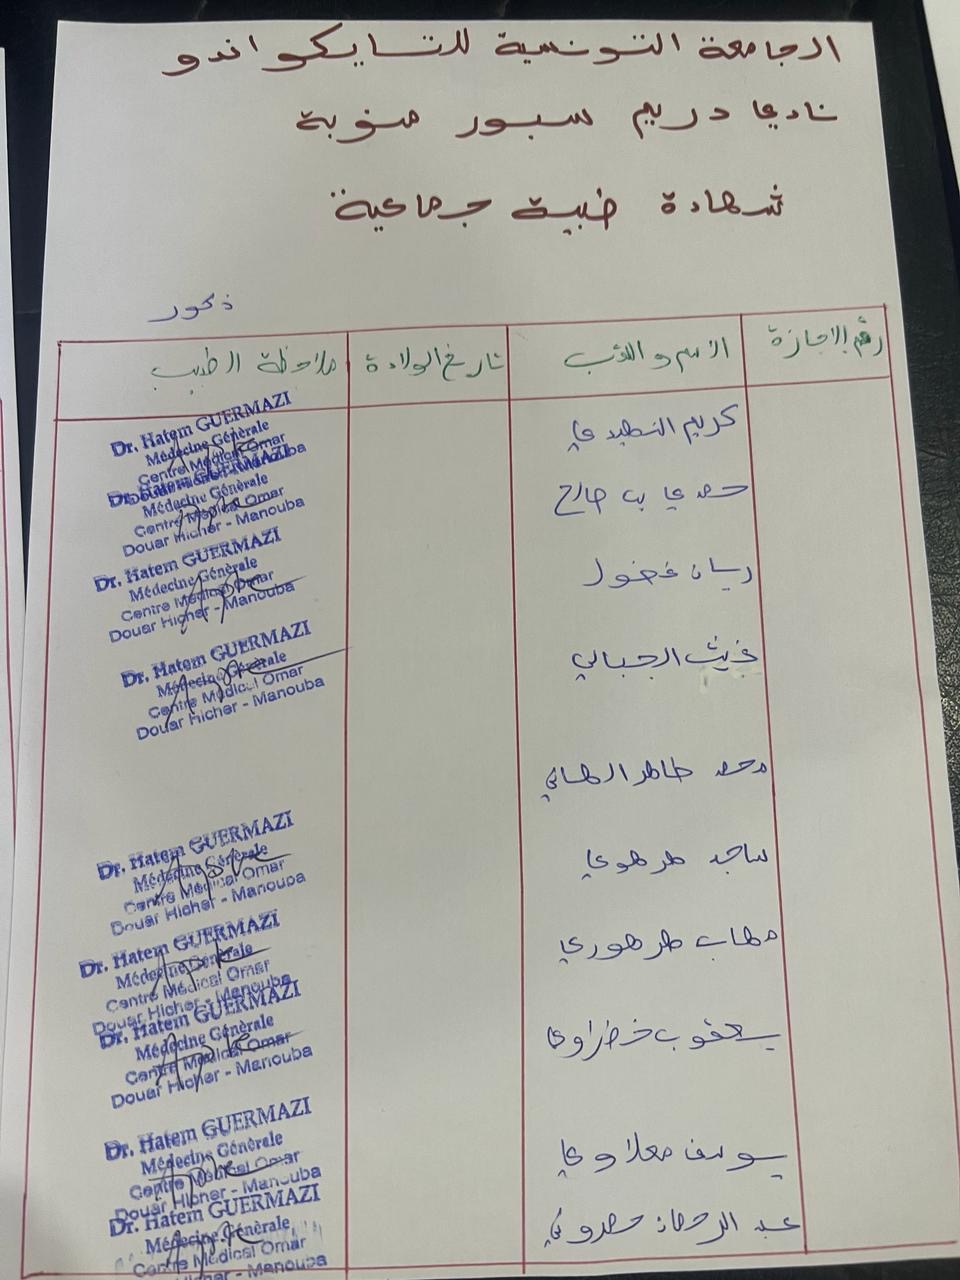 الجامعة التونسية للتايكواندو
نادي دريم سبور منوبة
شهادة طبية جماعية
ذكور
رقم الاجازة الاسم و اللقب تاريخ الولادة ملاحظة الطبيب
كريم
حمدي بن صالح
ريان
غيث الجبالي
محمد طاهر الهاني
ساجد طرهوني
مهاب طرهوني
يعقوب خضراوي
يوسف معلاوي
عبد الرحمان حمروني
Dr. Hatem GUERMAZI
Médecine Générale
Centre Médical Omar
Dr. Hatem GUERMAZI
Médecine Générale
Centre Médical Omar
Douar Hicher - Manouba
Dr. Hatem GUERMAZI
Médecine Générale
Centre Médical Omar
Douar Hicher - Manouba
Dr. Hatem GUERMAZI
Médecine Générale
Centre Médical Omar
Douar Hicher - Manouba
Dr. Hatem GUERMAZI
Médecine Générale
Centre Médical Omar
Douar Hicher - Manouba
Dr. Hatem GUERMAZI
Médecine Générale
Centre Médical Omar
Douar Hicher - Manouba
Dr. Hatem GUERMAZI
Médecine Générale
Centre Médical Omar
Douar Hicher - Manouba
Dr. Hatem GUERMAZI
Médecine Générale
Centre Médical Omar
Douar Hicher - Manouba
Dr. Hatem GUERMAZI
Médecine Générale
Centre Médical Omar
Hicher - Manouba